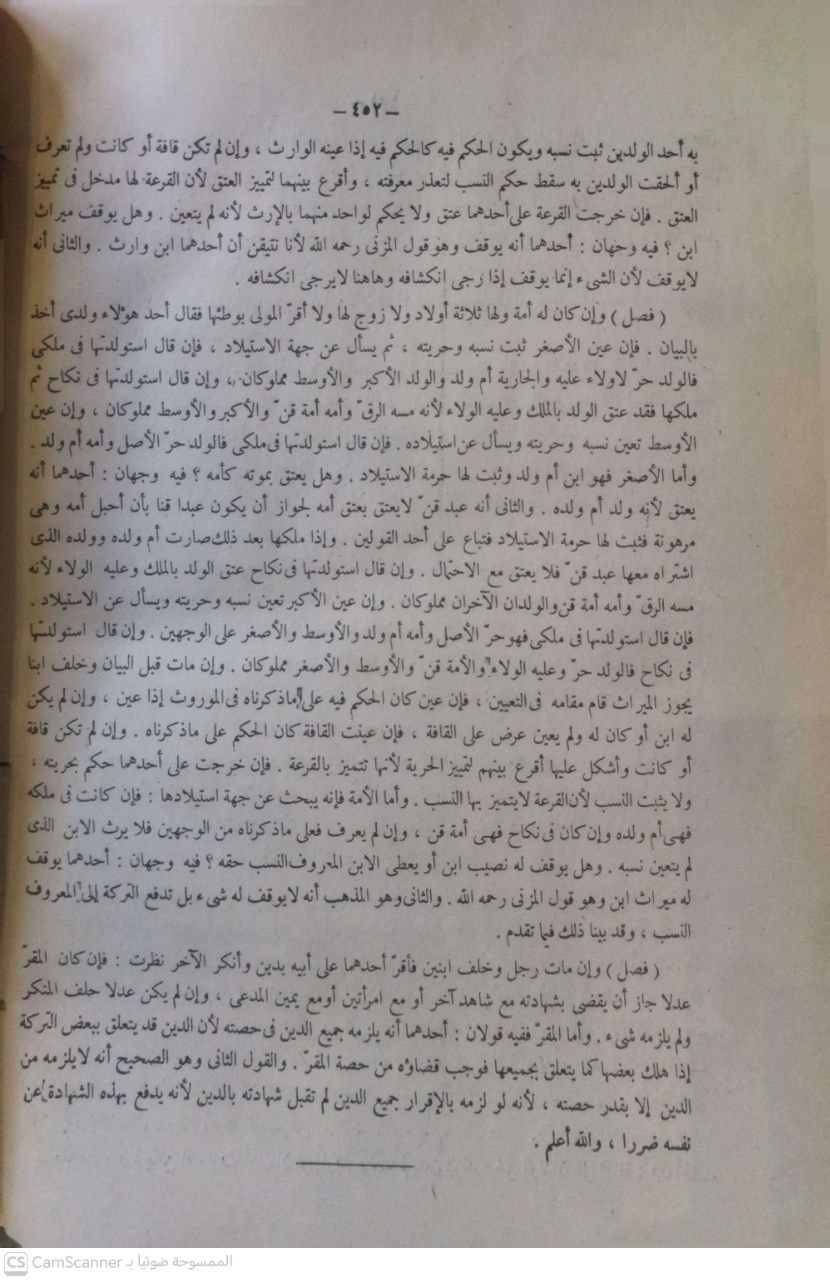 — ٤٥٢ —
به أحد الولدين ثبت نسبه ويكون الحكم فيه كالحكم فيه إذا عينه الوارث ، وإن لم تكن قافة أو كانت ولم تعرف
أو ألحقت الولدين به سقط حكم النسب لتعذر معرفته ، وأقرع بينهما لتمييز العتق لأن القرعة لها مدخل فى تمييز
العتق . فإن خرجت القرعة على أحدهما عتق ولا يحكم لواحد منهما بالإرث لأنه لم يتعين . وهل يوقف ميراث
ابن ؟ فيه وجهان : أحدهما أنه يوقف وهو قول المزنى رحمه الله لأنا نتيقن أن أحدهما ابن وارث . والثانى أنه
لايوقف لأن الشىء إنما يوقف إذا رجى انكشافه وهاهنا لايرجى انكشافه .
( فصل ) وإن كان له أمة ولها ثلاثة أولاد ولا زوج لها ولا أقرّ المولى بوطئها فقال أحد هؤلاء ولدى أخذ
بالبيان . فإن عين الأصغر ثبت نسبه وحريته ، ثم يسأل عن جهة الاستيلاد ، فإن قال استولدتها فى ملكى
فالولد حرّ لاولاء عليه والجارية أم ولد والولد الأكبر والأوسط مملوكان ، وإن قال استولدتها فى نكاح ثم
ملكها فقد عتق الولد بالملك وعليه الولاء لأنه مسه الرقّ وأمه أمة قنّ والأكبر والأوسط مملوكان ، وإن عين
الأوسط تعين نسبه وحريته ويسأل عن استيلاده . فإن قال استولدتها فى ملكى فالولد حرّ الأصل وأمه أم ولد .
وأما الأصغر فهو ابن أم ولد وثبت لها حرمة الاستيلاد . وهل يعتق بموته كأمه ؟ فيه وجهان : أحدهما أنه
يعتق لأنه ولد أم ولده . والثانى أنه عبد قنّ لايعتق بعتق أمه لجواز أن يكون عبدا قنا بأن أحبل أمه وهى
مرهونة فثبت لها حرمة الاستيلاد فتباع على أحد القولين . وإذا ملكها بعد ذلك صارت أم ولده وولده الذى
اشتراه معها عبد قنّ فلا يعتق مع الاحتمال . وإن قال استولدتها فى نكاح عتق الولد بالملك وعليه الولاء لأنه
مسه الرقّ وأمه أمة قن والولدان الآخران مملوكان . وإن عين الأكبر تعين نسبه وحريته ويسأل عن الاستيلاد .
فإن قال استولدتها فى ملكى فهو حرّ الأصل وأمه أم ولد والأوسط والأصغر على الوجهين . وإن قال استولدتها
فى نكاح فالولد حرّ وعليه الولاء والأمة قنّ والأوسط والأصغر مملوكان . وإن مات قبل البيان وخلف ابنا
يحوز الميراث قام مقامه فى التعيين ، فإن عين كان الحكم فيه على ماذكرناه فى الموروث إذا عين ، وإن لم يكن
له ابن أو كان له ولم يعين عرض على القافة ، فإن عينت القافة كان الحكم على ماذكرناه . وإن لم تكن قافة
أو كانت وأشكل عليها أقرع بينهم لتمييز الحرية لأنها تتميز بالقرعة . فإن خرجت على أحدهما حكم بحريته ،
ولا يثبت النسب لأن القرعة لايتميز بها النسب . وأما الأمة فإنه يبحث عن جهة استيلادها : فإن كانت فى ملكه
فهى أم ولده وإن كان فى نكاح فهى أمة قن ، وإن لم يعرف فعلى ماذكرناه من الوجهين فلا يرث الابن الذى
لم يتعين نسبه . وهل يوقف له نصيب ابن أو يعطى الابن المعروف النسب حقه ؟ فيه وجهان : أحدهما يوقف
له ميراث ابن وهو قول المزنى رحمه الله . والثانى وهو المذهب أنه لايوقف له شىء بل تدفع التركة إلى المعروف
النسب ، وقد بينا ذلك فيما تقدم .
( فصل ) وإن مات رجل وخلف ابنين فأقرّ أحدهما على أبيه بدين وأنكر الآخر نظرت : فإن كان المقرّ
عدلا جاز أن يقضى بشهادته مع شاهد آخر أو مع امرأتين أومع يمين المدعى ، وإن لم يكن عدلا حلف المنكر
ولم يلزمه شىء . وأما المقرّ ففيه قولان : أحدهما أنه يلزمه جميع الدين فى حصته لأن الدين قد يتعلق ببعض التركة
إذا هلك بعضها كما يتعلق بجميعها فوجب قضاؤه من حصة المقرّ . والقول الثانى وهو الصحيح أنه لايلزمه من
الدين إلا بقدر حصته ، لأنه لو لزمه بالإقرار جميع الدين لم تقبل شهادته بالدين لأنه يدفع بهذه الشهادة عن
نفسه ضررا ، والله أعلم .
CS CamScanner الممسوحة ضوئيا بـ